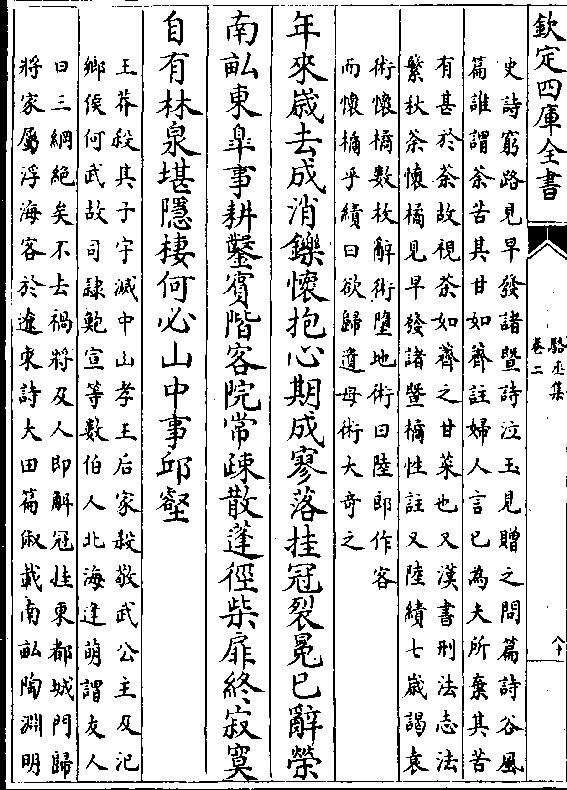 欽定四庫全書
駱丞集
卷二
八十
史詩窮路見早發諸暨詩泣玉見贈之問篇詩谷風
篇誰謂荼苦其甘如薺註婦人言已為夫所棄其苦
有甚於荼故視荼如薺之甘菜也又漢書刑法志法
繁秋荼懷橘見早發諸暨橘性註又陸績七歲謁袁
術懷橘數枚辭術墮地術曰陸郎作客
而懷橘乎績曰欲歸遺母術大奇之
年來歲去成消鑠懷抱心期成寥落挂冠裂冕已辭榮
南畝東臯事耕鑿賓階客院常疎散蓬徑柴扉終寂寞
自有林泉堪隱棲何必山中事邱壑
王莽殺其子宇滅中山孝王后家殺敬武公主及汜
鄉侯何武故司隷鮑宣等數伯人北海逢萌謂友人
曰三綱絕矣不去禍將及人即解冠挂東都城門歸
將家屬浮海客於遼東詩大田篇俶載南畝陶淵明